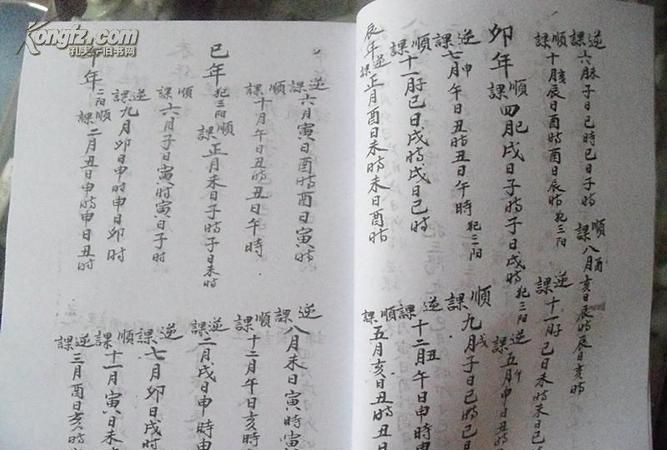 Kongfz.com
孔夫子旧书网
逆課六月子日巳時巳日子時
順課八月亥日辰時辰日亥時
順課十月辰日酉時酉日辰時犯三阳
逆課十一月巳日未時未日巳
卯年
順課四月戌日子時子日戌時犯三阳
逆課五月申日丑時
逆課七月午日丑時丑日午時犯三阳
順課九月子日巳時巳日
順課十一月巳日戌時戌日巳時
逆課十二月午日申時申
辰年逆課正月酉日未時未日酉時
順課五月亥日丑時丑日
逆課六月寅日酉時酉日寅時
逆課八月未日寅時寅
順課十月午日丑時丑日午時
順課十二月午日亥時
巳年犯三阳
順課正月未日子時子日未時
逆課二月戌日申時申
順課六月子日寅時寅日子時
逆課七月卯日戌時
逆課九月卯日申時申日卯時
順課十一月寅日未
年
順課二月丑日申時申日丑時
逆課三月酉日亥時